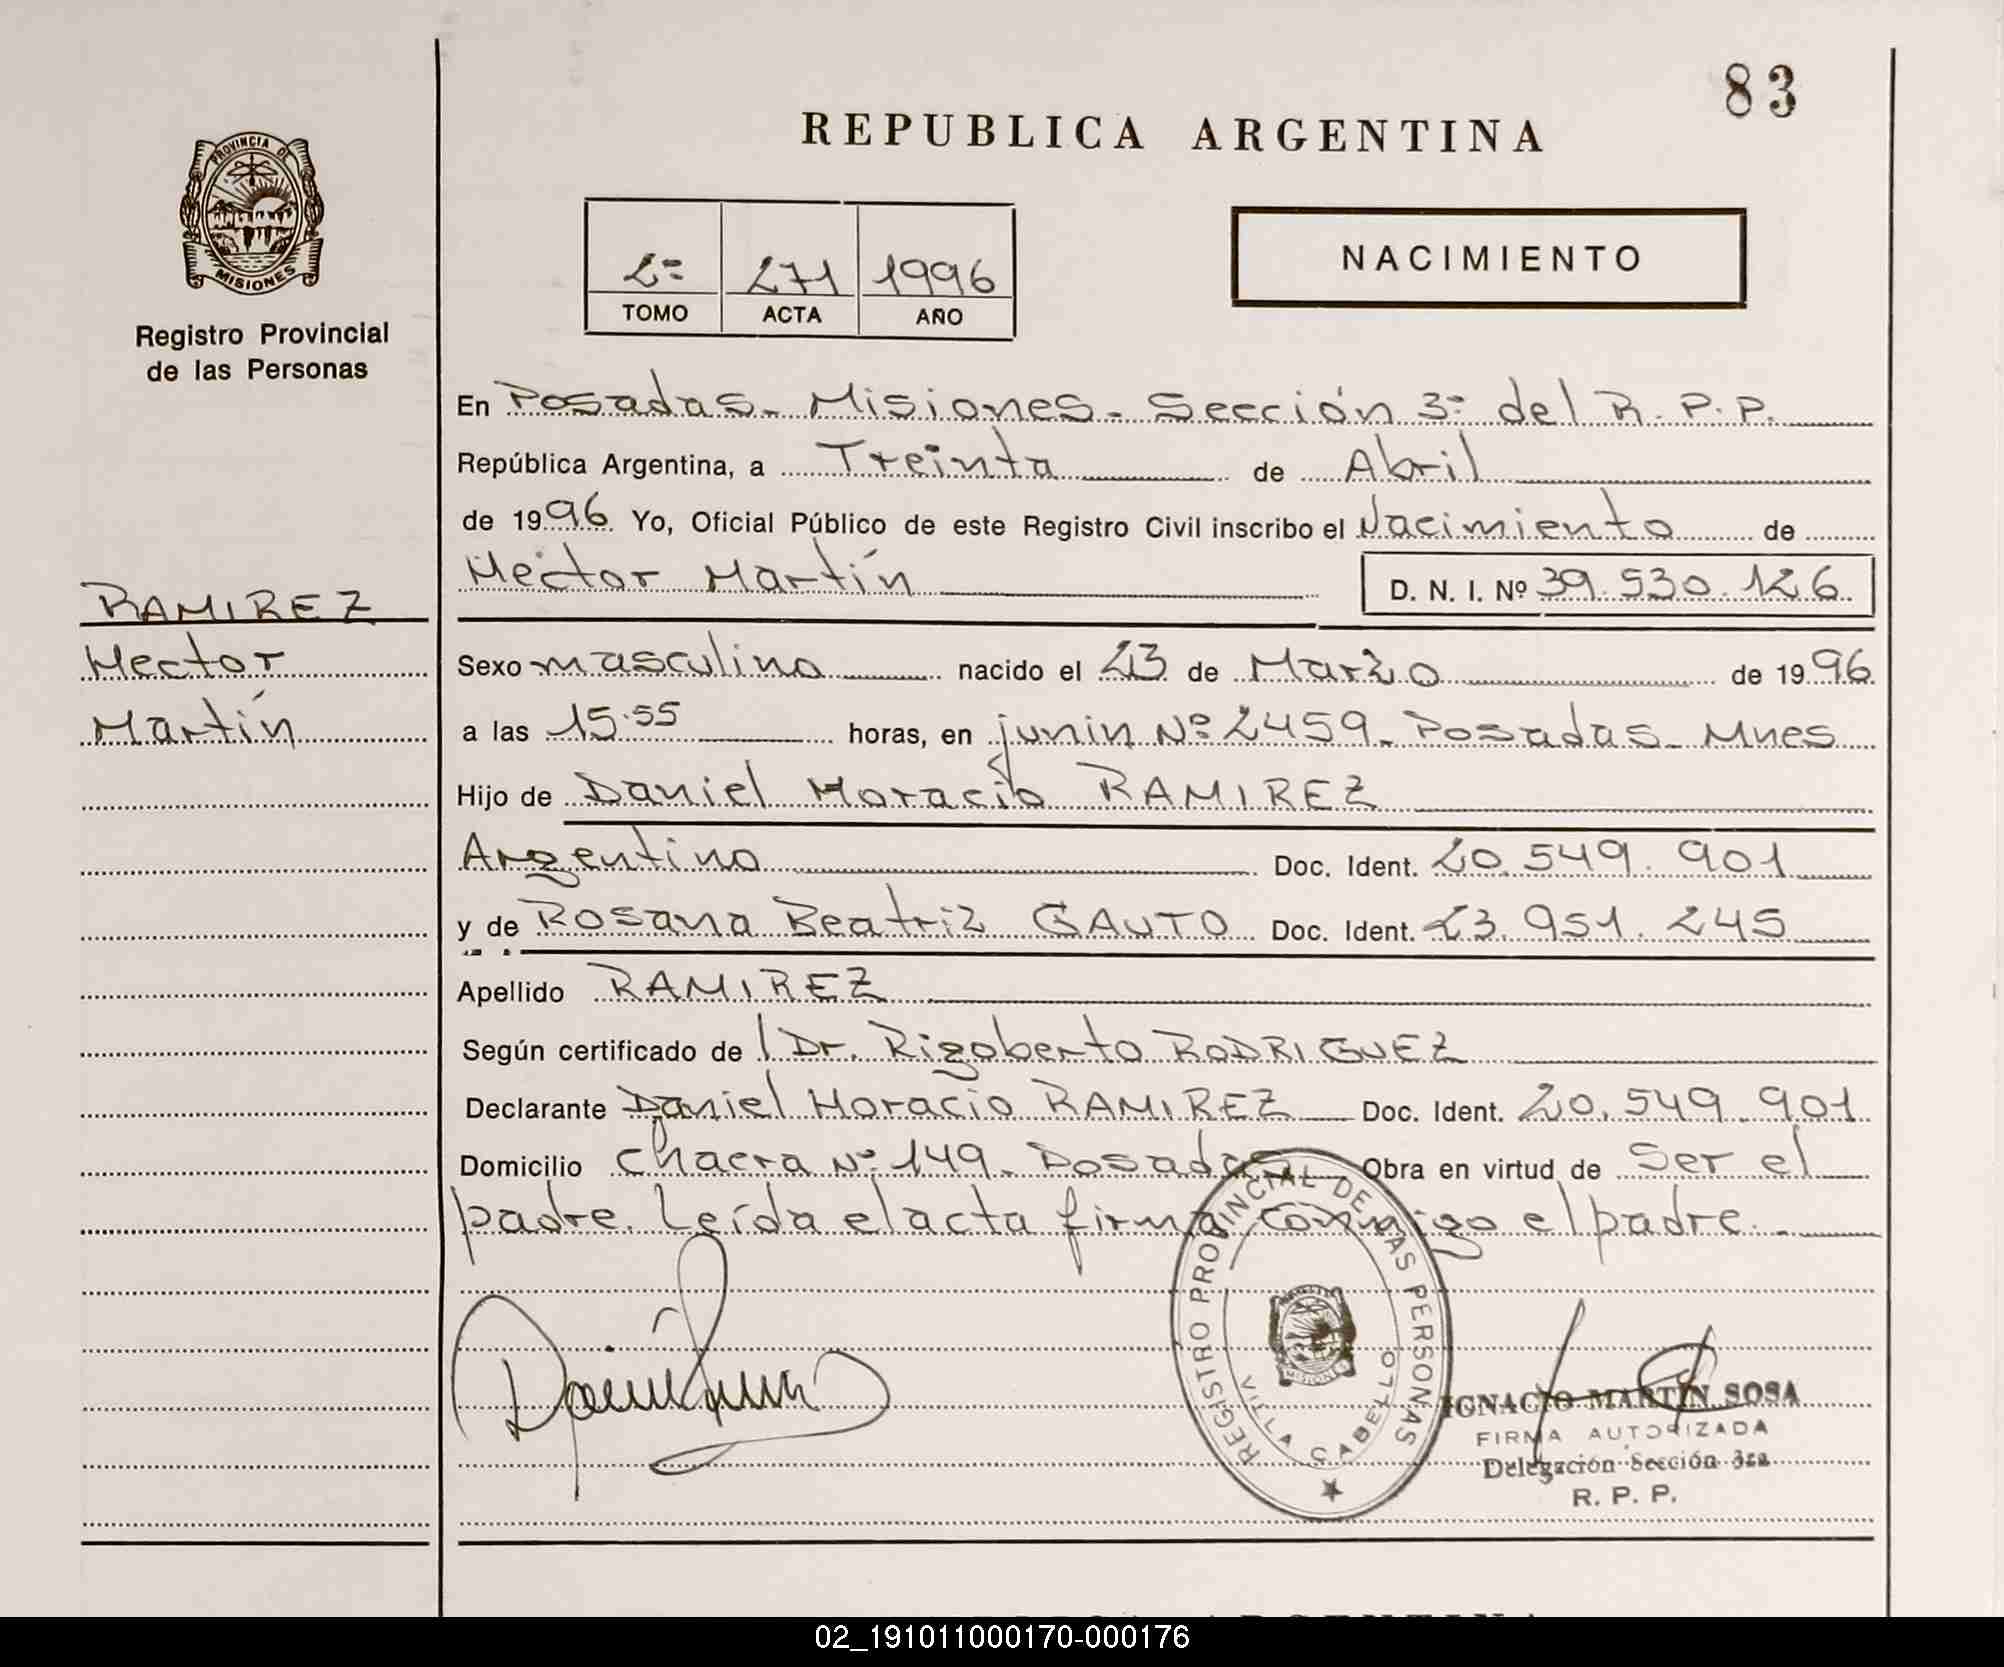 83
REPUBLICA ARGENTINA
PROVINCIA DE
MISIONES
Registro Provincial
de las Personas
2º 271 1996
TOMO ACTA AÑO
NACIMIENTO
En Posadas - Misiones - Sección 3º del R.P.P.
República Argentina, a Treinta de Abril
de 1996 Yo, Oficial Público de este Registro Civil inscribo el Nacimiento de
Hector Martín D. N. I. Nº 39.530.126
RAMIREZ
Hector
Martín
Sexo masculino nacido el 23 de Marzo de 1996
a las 15.55 horas, en junin Nº 2459 - Posadas - Mnes
Hijo de Daniel Horacio RAMIREZ
Argentino Doc. Ident. 20.549.901
y de Rosana Beatriz GAUTO Doc. Ident. 23.951.245
Apellido RAMIREZ
Según certificado de l Dr. Rigoberto RODRIGUEZ
Declarante Daniel Horacio RAMIREZ Doc. Ident. 20.549.901
Domicilio Chacra Nº 149 - Posadas Obra en virtud de Ser el
padre. Leída el acta firma conmigo el padre. -
REGISTRO PROVINCIAL DE LAS PERSONAS
MISIONES
VILLA CABELLO
IGNACIO MARTIN SOSA
FIRMA AUTORIZADA
Delegación Sección 3ra
R. P. P.
02_191011000170-000176